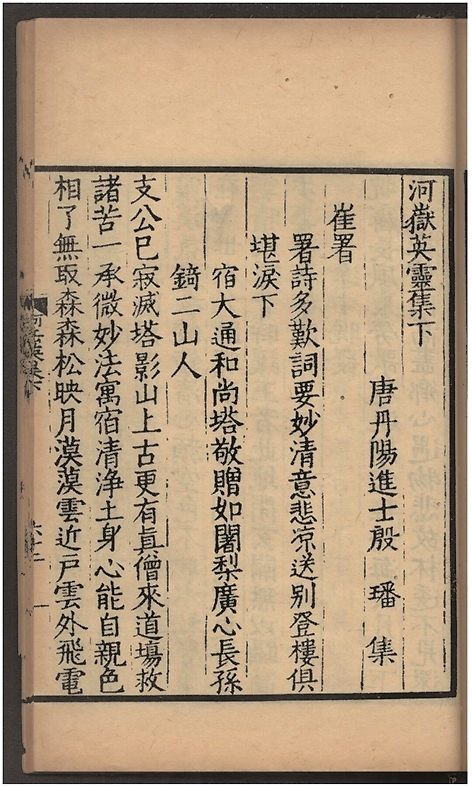 河嶽英靈集下
唐丹陽進士殷璠集
崔署
署詩多歎詞要妙清意悲凉送别登樓俱
堪淚下
宿大通和尚塔敬贈如闍梨廣心長孫
錡二山人
支公巳寂滅塔影山上古更有真僧來道塲救
諸苦一承微妙法寓宿清浄土身心能自親色
相了無取森森松映月漠漠雲近戸雲外飛電